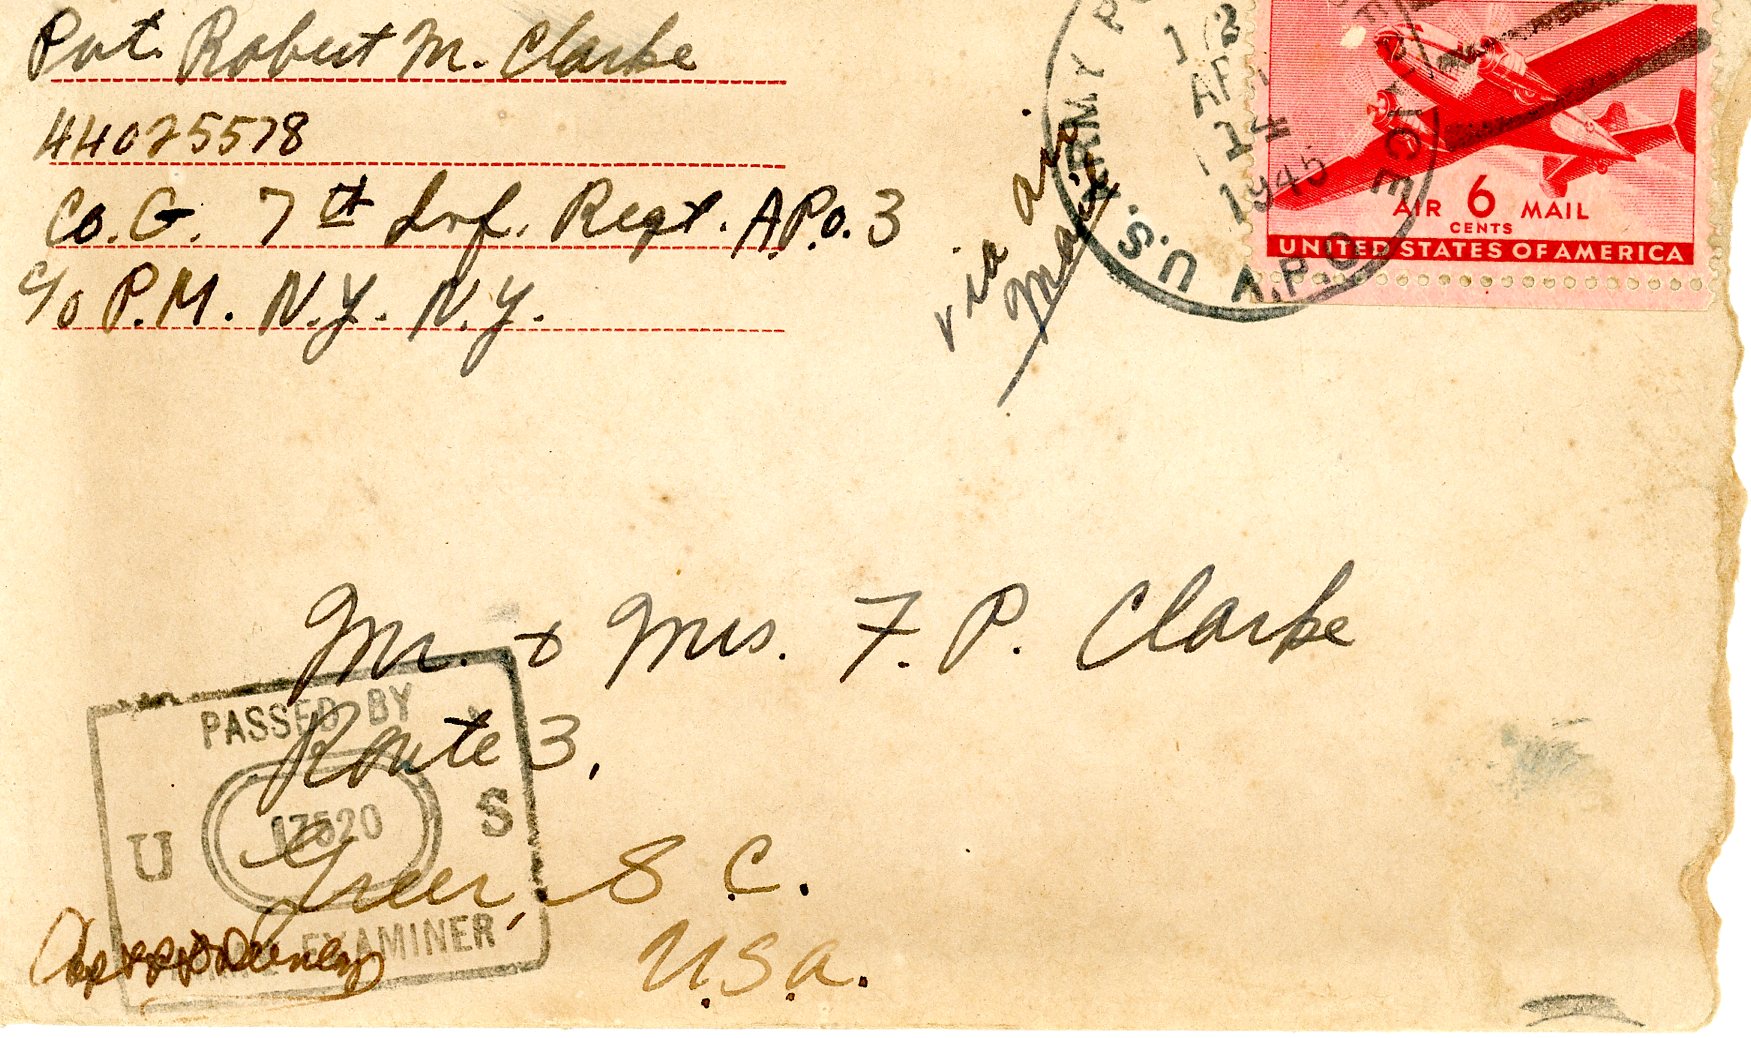 Pvt. Robert M. Clarke
44025578
Co. G. 7th Inf. Regt. A.P.O. 3
c/o P.M. N.Y. N.Y.
via air
mail
U.S. ARMY
SERVICE
A.P.O.
12
14
1945
AIR 6 MAIL
CENTS
UNITED STATES OF AMERICA
Mr. + Mrs. F. P. Clarke
Route 3,
Greer, S C.
U.S.A.
PASSED BY
U 17520 S
EXAMINER